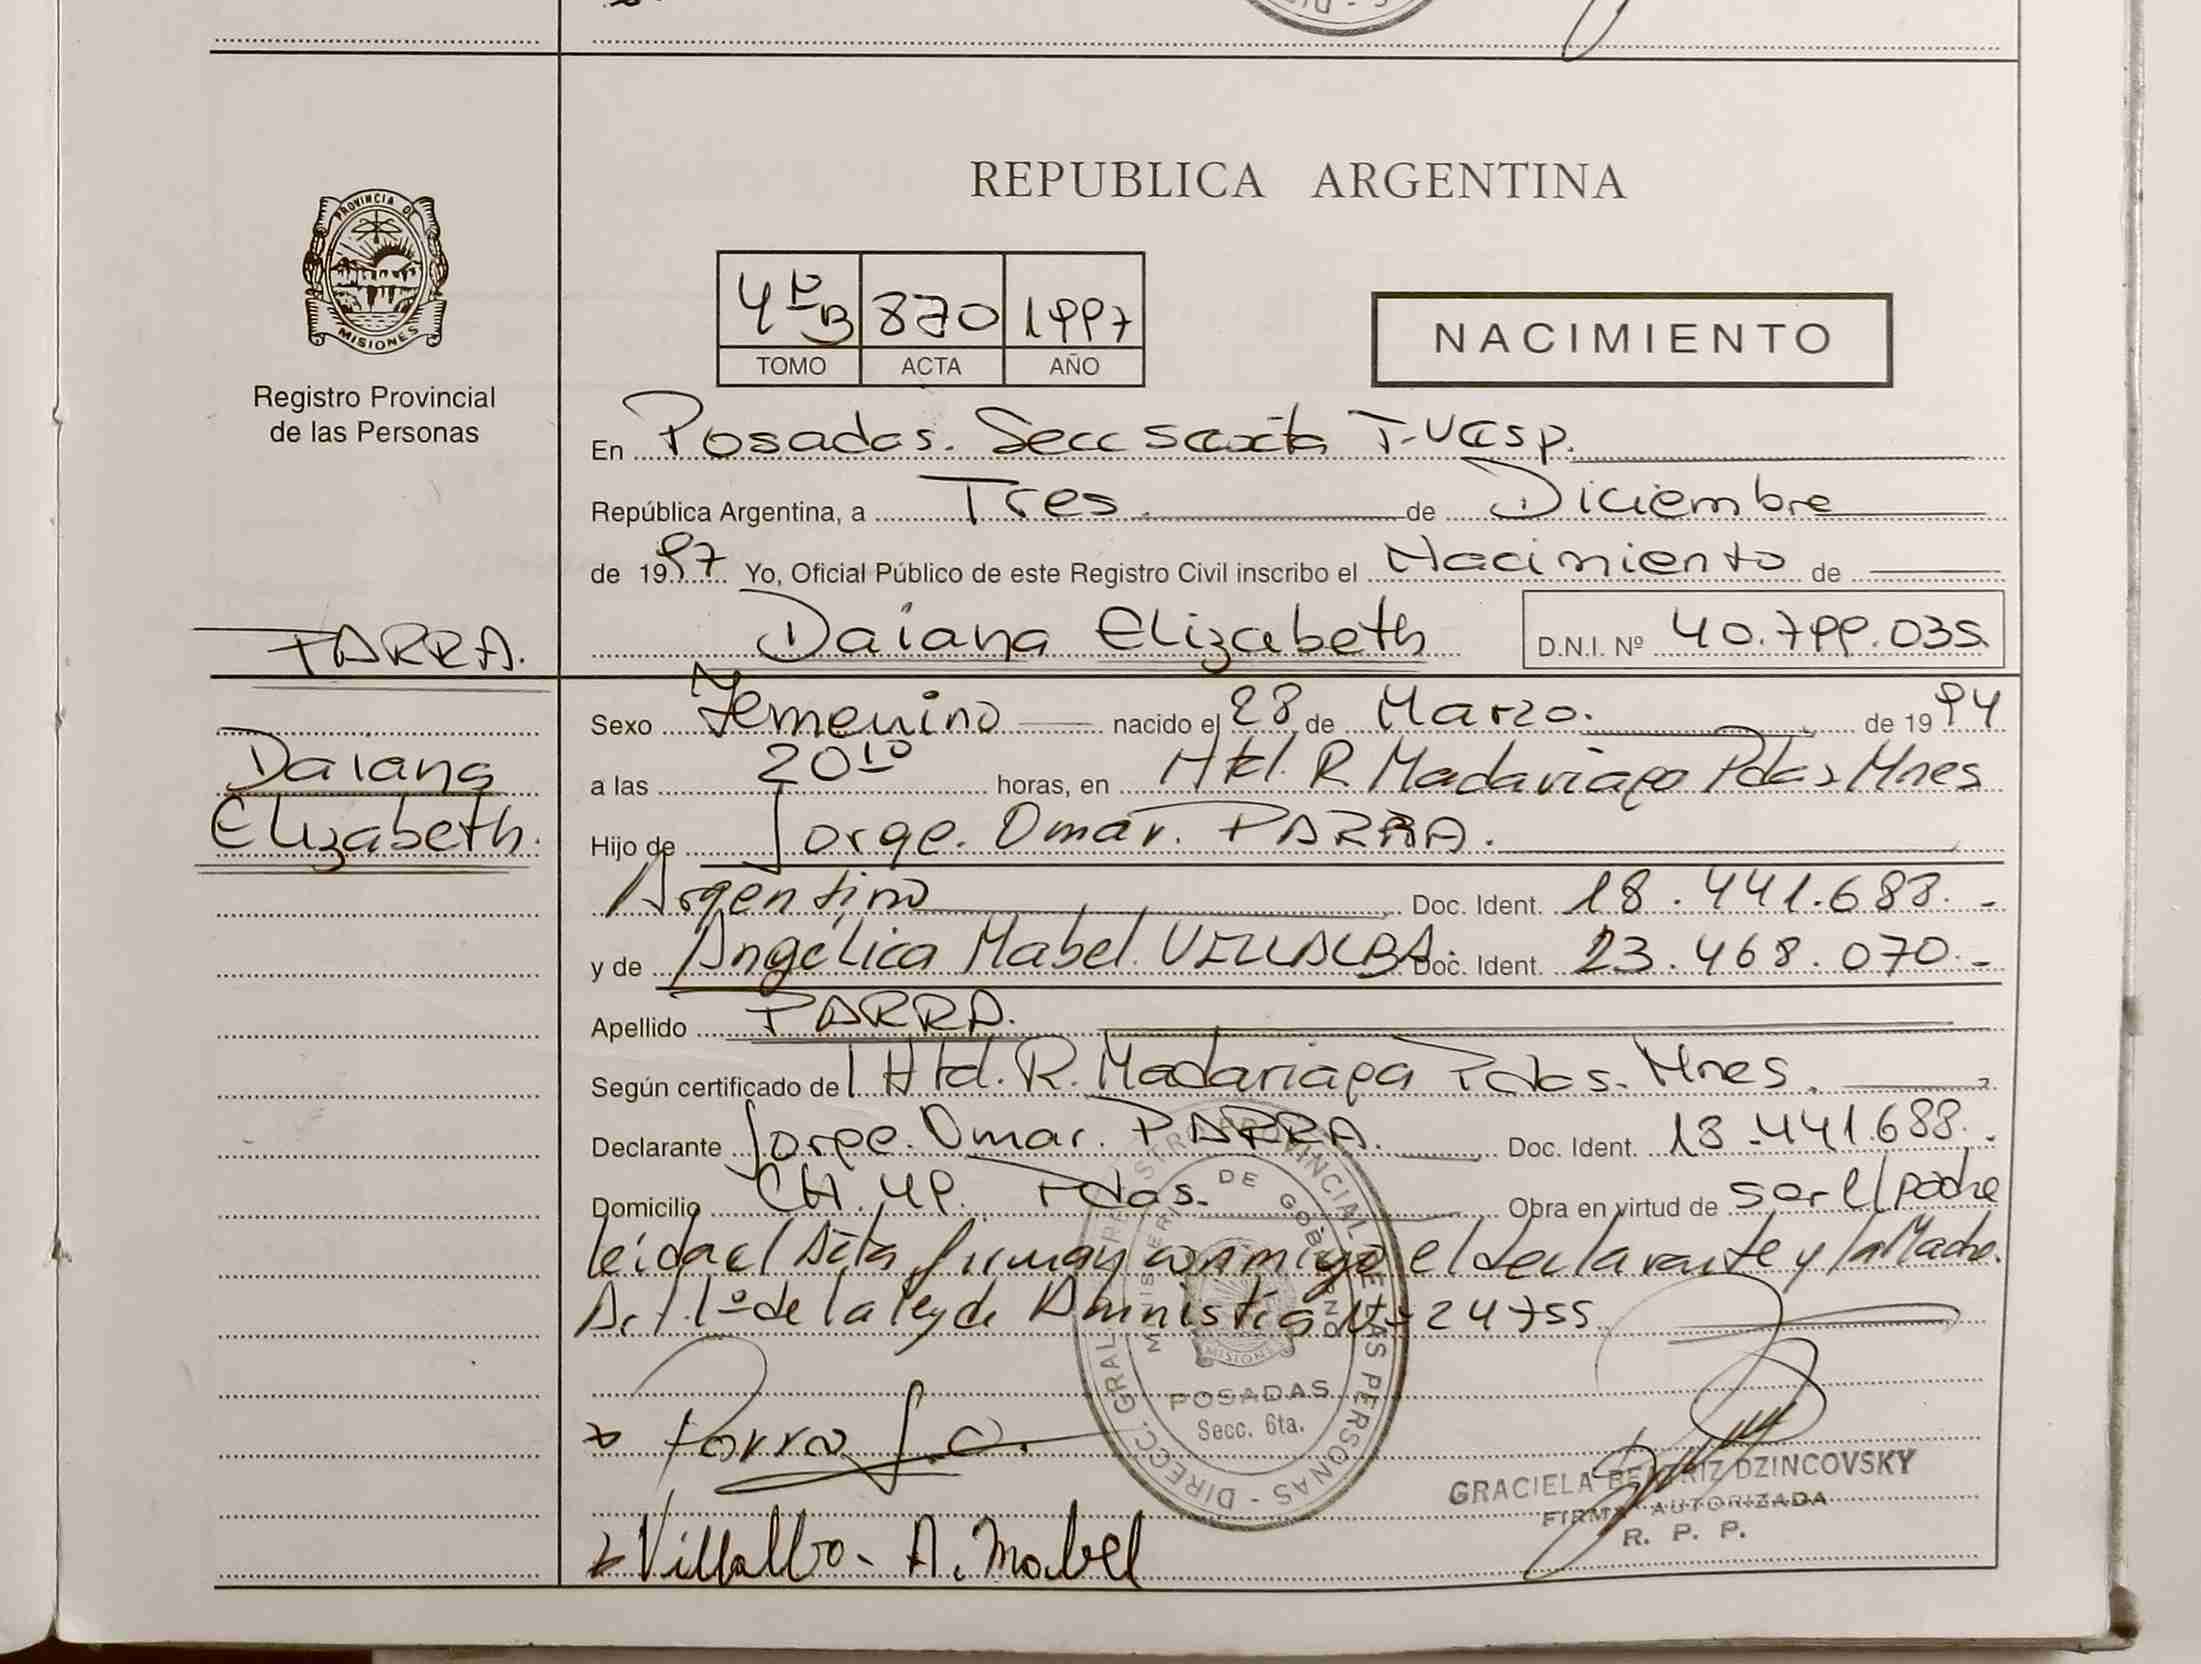 REPUBLICA ARGENTINA
PROVINCIA DE
MISIONES
Registro Provincial
de las Personas
4º B 870 1997
TOMO ACTA AÑO
NACIMIENTO
En Posadas. Secc sexta T-Vesp.
República Argentina, a Tres de Diciembre
de 1997 Yo, Oficial Público de este Registro Civil inscribo el Nacimiento de
Daiana Elizabeth D.N.I. Nº 40.799.035
PARRA.
Daiana
Elizabeth.
Sexo Femenino nacido el 28 de Marzo. de 1994
a las 20 10 horas, en Htal. R Madariaga Pdas Mnes
Hijo de Jorge. Omar. PARRA.
Argentino Doc. Ident. 18.441.688.-
y de Angélica Mabel. VILLALBA. Doc. Ident. 23.468.070.-
Apellido PARRA.
Según certificado de Htal. R. Madariaga Pdas. Mnes.
Declarante Jorge. Omar. PARRA. Doc. Ident. 18.441.688.-
Domicilio CH. Pdas. Obra en virtud de ser el padre
leida el Acta firman conmigo el declarante y la Madre.
Art. 1º de la ley de Amnistia Nº 24755
DIRECC. GRAL. REGISTRO PROVINCIAL DE LAS PERSONAS
MINISTERIO DE GOBIERNO
MISIONES
POSADAS
Secc. 6ta.
Parra J.O.
Villalba - A. Mabel
GRACIELA BEATRIZ DZINCOVSKY
FIRMA AUTORIZADA
R. P. P.